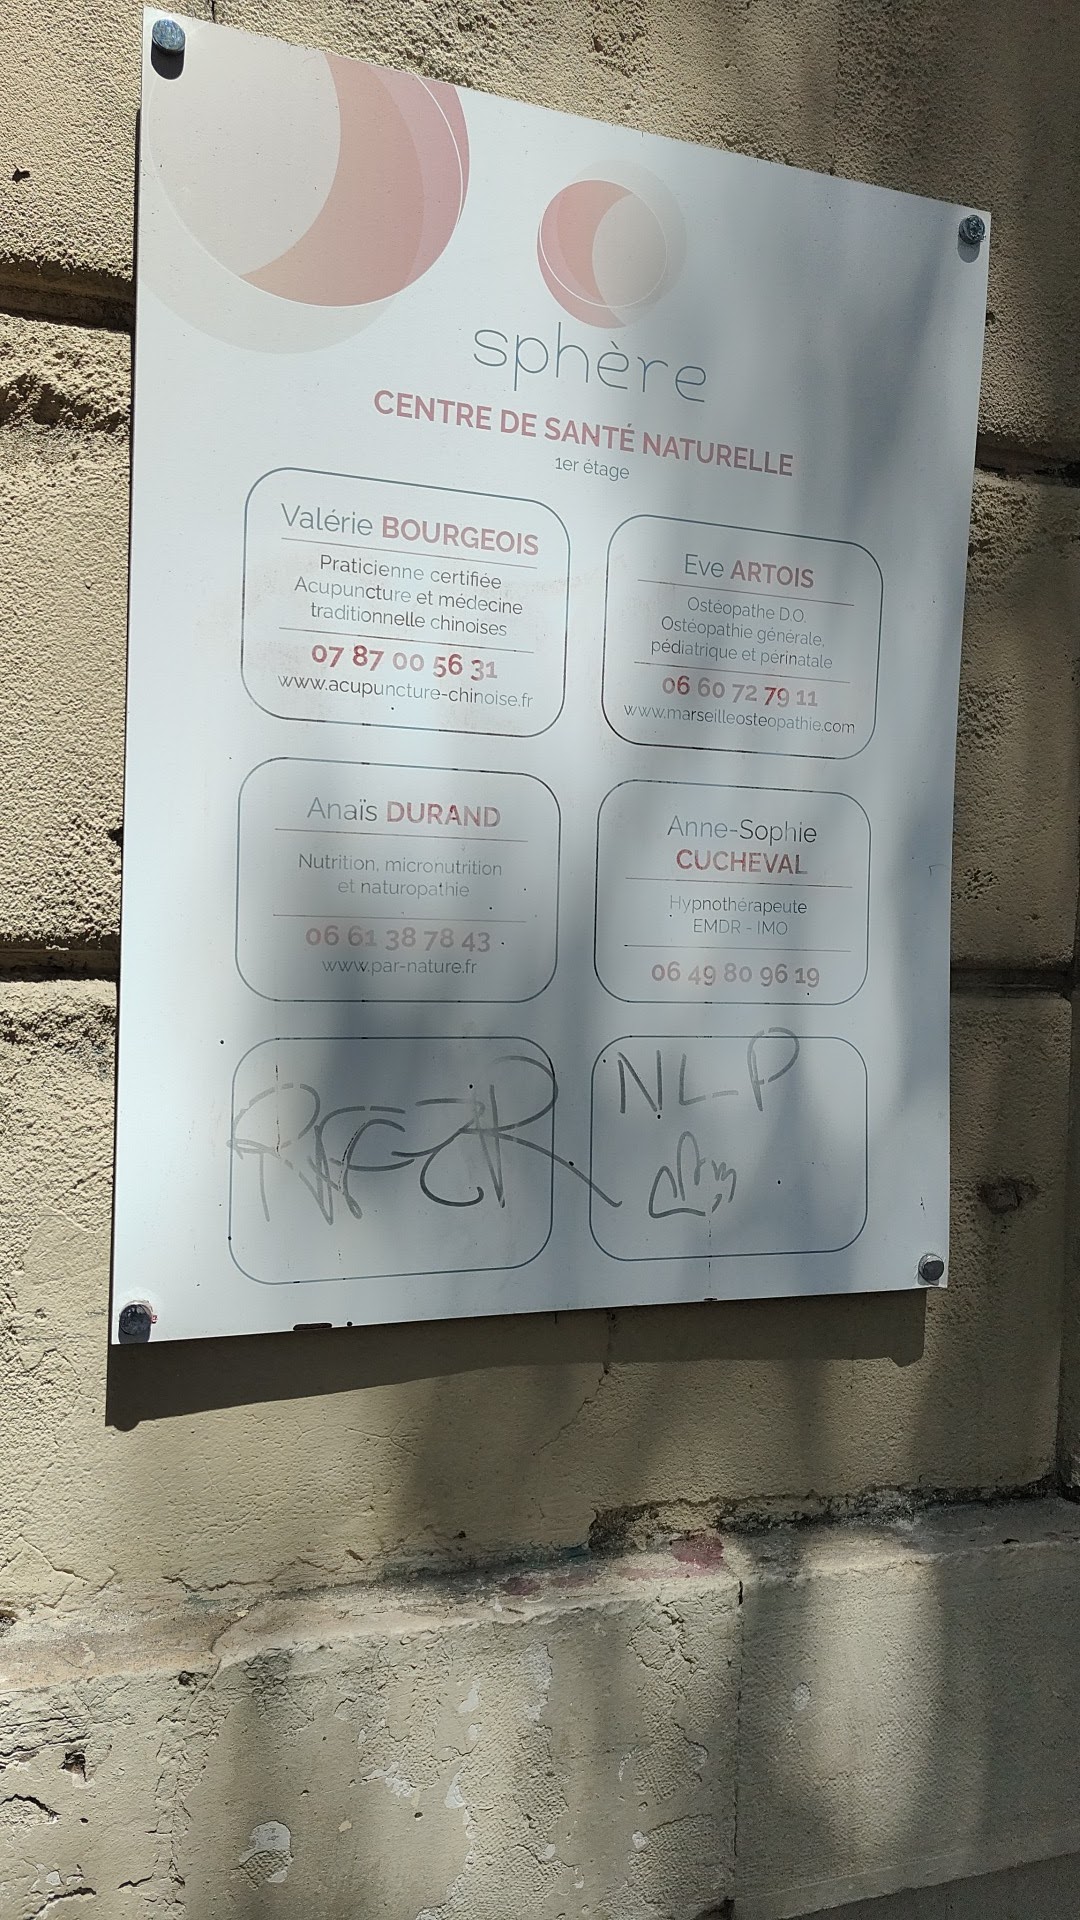 sphère
CENTRE DE SANTÉ NATURELLE
1er étage
Valérie BOURGEOIS
Praticienne certifiée
Acupuncture et médecine
traditionnelle chinoises
07 87 00 56 31
www.acupuncture-chinoise.fr
Eve ARTOIS
Ostéopathe D.O.
Ostéopathie générale,
pédiatrique et périnatale
06 60 72 79 11
www.marseilleosteopathie.com
Anaïs DURAND
Nutrition, micronutrition
et naturopathie
06 61 38 78 43
www.par-nature.fr
Anne-Sophie
CUCHEVAL
Hypnothérapeute
EMDR - IMO
06 49 80 96 19
NLP